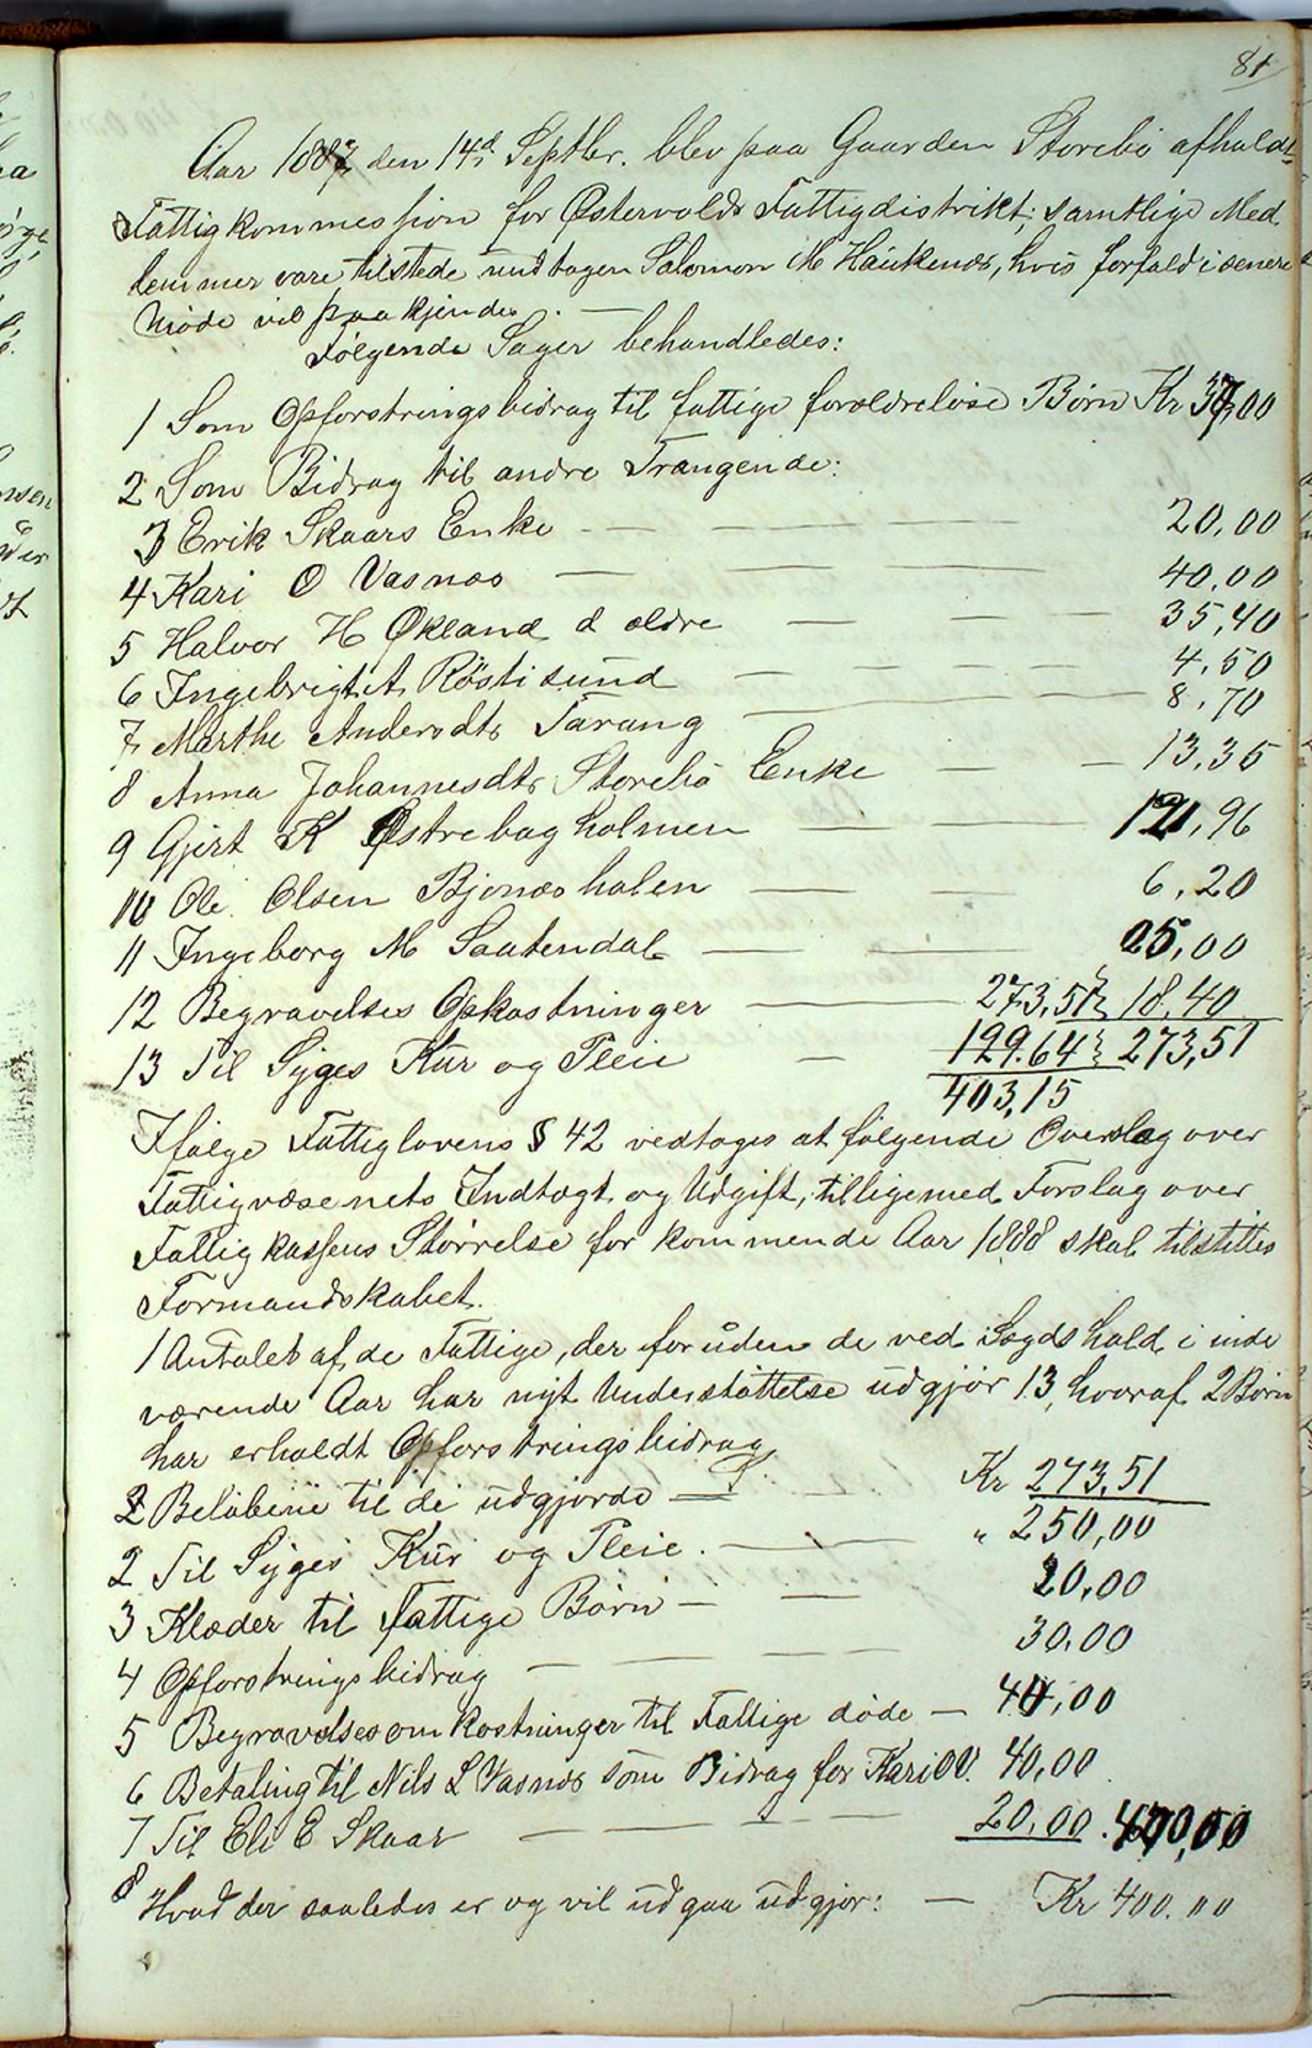 81
Aar 1887 den 14d Septbr. blev paa Gaarden Storebö afholdt
Fattigkommession for Østervolds Fattigdistrikt; samtlige Med
lemmer vare tilstede undtagen Salomon M Haukenæs, hvis forfald i senere
Möde vil paakjendes. —
Følgende Sager behandledes:
1 Som Opforstringsbidrag til fattige forældreløse Börn Kr 37,00
2 Som Bidrag til andre Trængende:
3 Erik Skaars Enke — 20,00
4 Kari O Vasnæs — 40,00
5 Halvor H Økland d ældre — 35,40
6 Ingebrigt A Röstisund — 4,50
7 Marthe Andersdtr Tarang — 8,70
8 Anna Johannesdtr Storebö Enke — 13,35
9 Gjert K Østrebagholmen — 121,96
10 Ole Olsen Bjonæshalen — 6,20
11 Ingeborg M Saatendal — 25,00
12 Begravelses Opkostninger — 273,51 18,40
13 Til Syges Kur og Pleie — 129.64 273,51
403,15
Ifølge Fattiglovens § 42 vedtoges at følgende Overslag over
Fattigvæsenets Indtægt og Udgift, tilligemed Forslag over
Fattigkassens Størrelse for kommende Aar 1888 skal tilstilles
Formandskabet.
1 Antalet af de Fattige, der foruden de ved Lægdshold i inde
værende Aar har nydt Understöttelse udgjör 13, hvoraf 2 Börn
har erholdt Opforstringsbidrag
2 Belöbene til de udgjorde — Kr 273,51
2 Til Syges Kur og Pleie. — " 250,00
3 Klæder til Fattige Börn — 20,00
4 Opforstringsbidrag — 30,00
5 Begravelsesomkostninger til Fattige døde — 40,00
6 Betaling til Nils L Vasnæs som Bidrag for Kari O V. 40,00
7 Til Eli E Skaar — 20,00. 400,00
8 Hvad der saaledes er og vil udgaa udgjör: — Kr 400.00